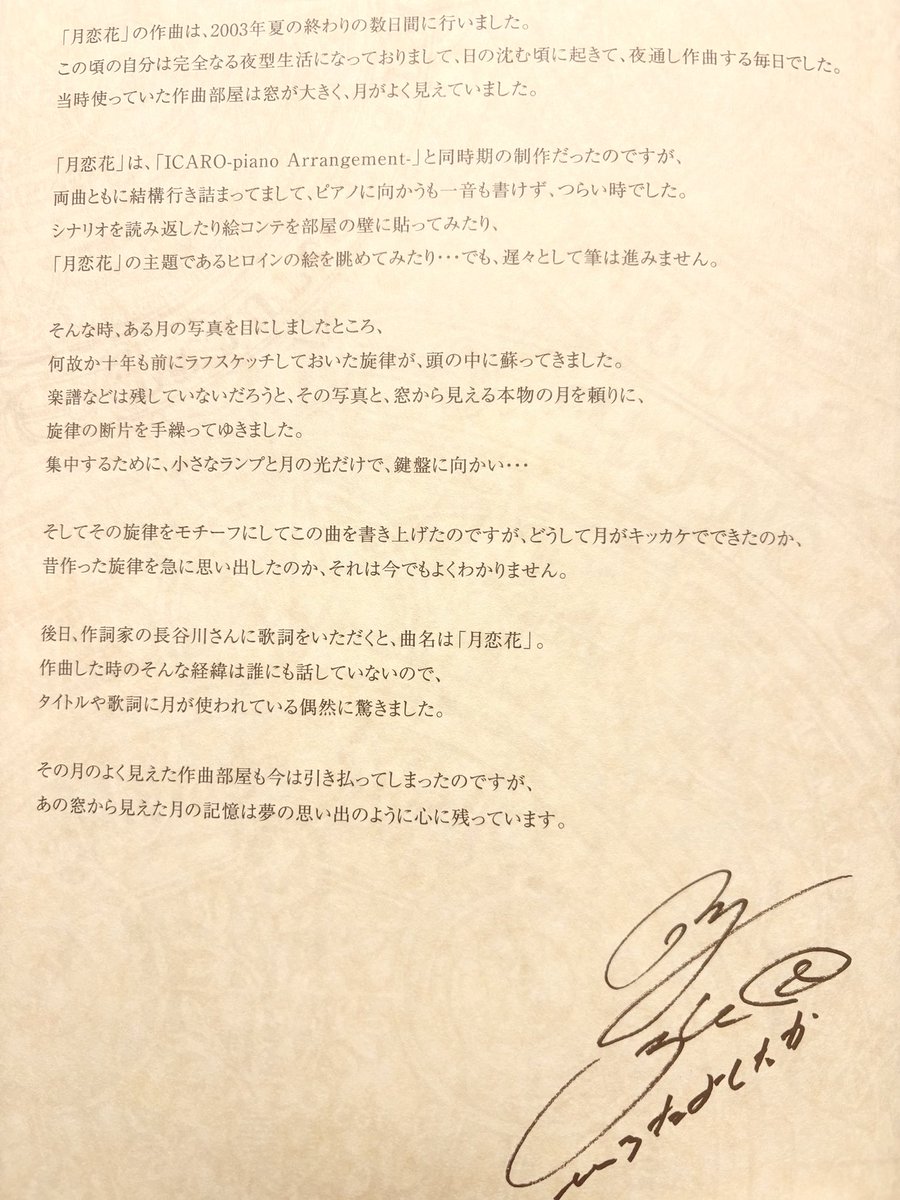 「月恋花」の作曲は、2003年夏の終わりの数日間に行いました。
この頃の自分は完全なる夜型生活になっておりまして、日の沈む頃に起きて、夜通し作曲する毎日でした。
当時使っていた作曲部屋は窓が大きく、月がよく見えていました。
「月恋花」は、「ICARO-piano Arrangement-」と同時期の制作だったのですが、
両曲ともに結構行き詰まってまして、ピアノに向かうも一音も書けず、つらい時でした。
シナリオを読み返したり絵コンテを部屋の壁に貼ってみたり、
「月恋花」の主題であるヒロインの絵を眺めてみたり・・・でも、遅々として筆は進みません。
そんな時、ある月の写真を目にしましたところ、
何故か十年も前にラフスケッチしておいた旋律が、頭の中に蘇ってきました。
楽譜などは残していないだろうと、その写真と、窓から見える本物の月を頼りに、
旋律の断片を手繰ってゆきました。
集中するために、小さなランプと月の光だけで、鍵盤に向かい・・・
そしてその旋律をモチーフにしてこの曲を書き上げたのですが、どうして月がキッカケでできたのか、
昔作った旋律を急に思い出したのか、それは今でもよくわかりません。
後日、作詞家の長谷川さんに歌詞をいただくと、曲名は「月恋花」。
作曲した時のそんな経緯は誰にも話していないので、
タイトルや歌詞に月が使われている偶然に驚きました。
その月のよく見えた作曲部屋も今は引き払ってしまったのですが、
あの窓から見えた月の記憶は夢の思い出のように心に残っています。